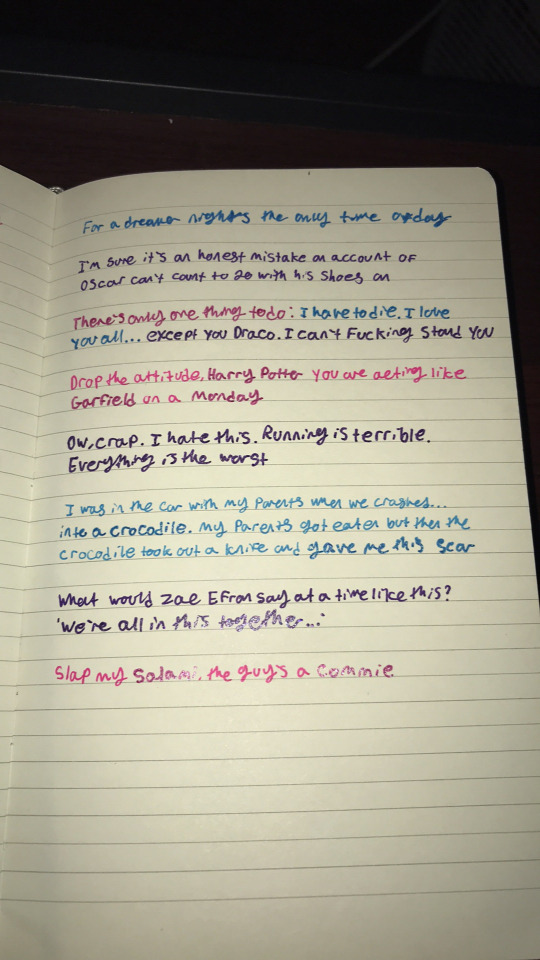 For a dreamer night's the only time of day
I'm sure it's an honest mistake on account of
Oscar can't count to 20 with his shoes on
There's only one thing to do: I have to die. I love
you all... except you Draco. I can't Fucking Stand You
Drop the attitude, Harry Potter You are acting like
Garfield on a Monday
Ow, crap. I hate this. Running is terrible.
Everything is the worst
I was in the car with my Parents when we crashed...
into a crocodile. My Parents got eaten but then the
crocodile took out a knife and gave me this scar
What would Zac Efron say at a time like this?
'We're all in this together...'
Slap my Salami, the guy's a Commie